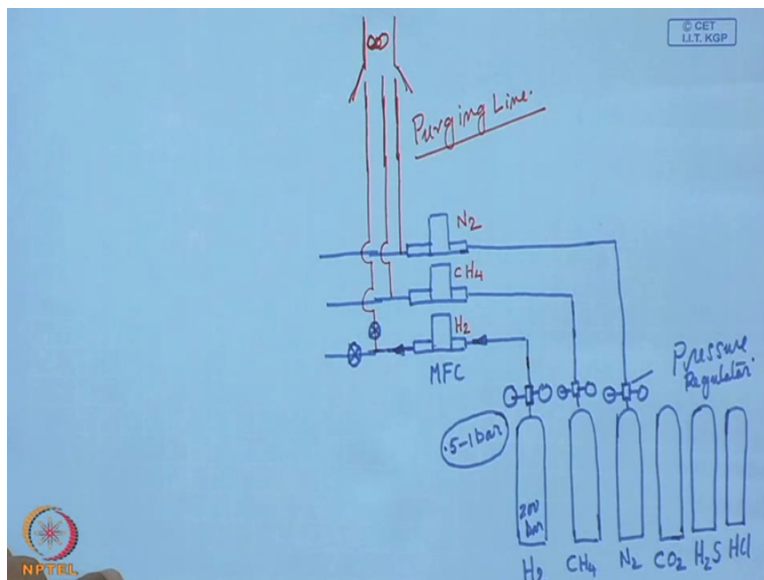 © CET
I.I.T. KGP
Purging Line.
N2
CH4
H2
MFC
Pressure
Regulator.
.5-1bar
200
bar
H2
CH4
N2
CO2
H2S
HCl
NPTEL